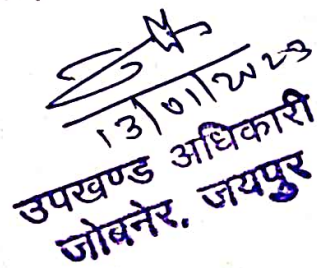 13/01/2023
उपखण्ड अधिकारी
जोबनेर, जयपुर